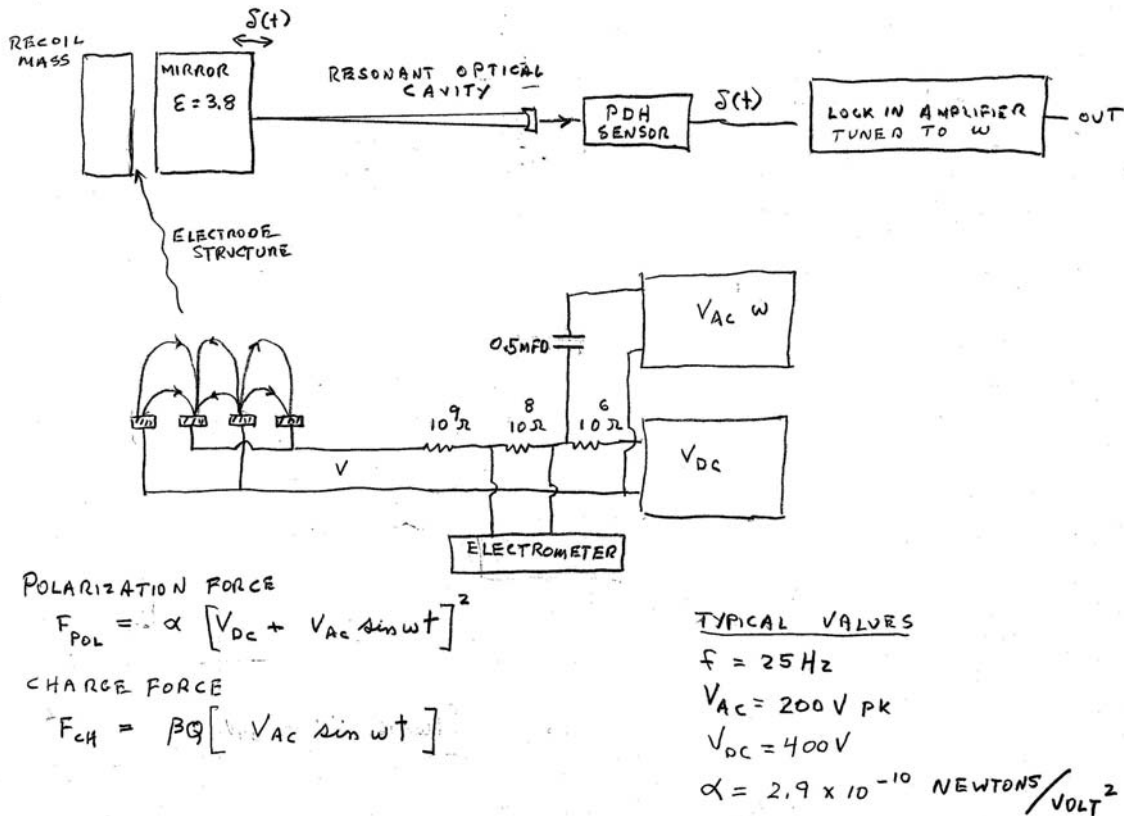 δ(t)
RECOIL
MASS
MIRROR
ε = 3.8
RESONANT OPTICAL
CAVITY
PDH
SENSOR
δ(t)
LOCK IN AMPLIFIER
TUNED TO ω
OUT
ELECTRODE
STRUCTURE
0.5MFD
V_AC ω
10^9 Ω
10^8 Ω
10^6 Ω
V
V_DC
ELECTROMETER
POLARIZATION FORCE
F_POL = α [V_DC + V_AC sin ωt]^2
CHARGE FORCE
F_CH = βQ [V_AC sin ωt]
TYPICAL VALUES
f = 25 Hz
V_AC = 200 V PK
V_DC = 400V
α = 2.9 × 10^-10 NEWTONS/VOLT^2